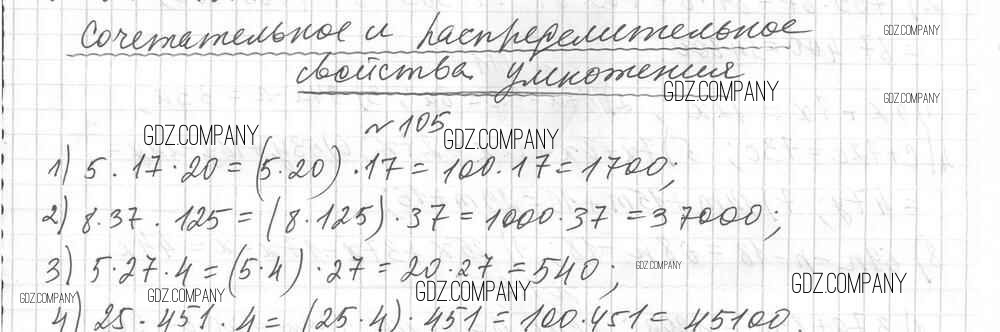 Сочетательное и распределительное
свойства умножения
GDZ.COMPANY
GDZ.COMPANY
GDZ.COMPANY
№ 105
GDZ.COMPANY
GDZ.COMPANY
1) 5 · 17 · 20 = (5 · 20) · 17 = 100 · 17 = 1700;
2) 8 · 37 · 125 = (8 · 125) · 37 = 1000 · 37 = 37000;
3) 5 · 27 · 4 = (5 · 4) · 27 = 20 · 27 = 540;
GDZ.COMPANY
GDZ.COMPANY
GDZ.COMPANY
GDZ.COMPANY
GDZ.COMPANY
4) 25 · 451 · 4 = (25 · 4) · 451 = 100 · 451 = 45100.